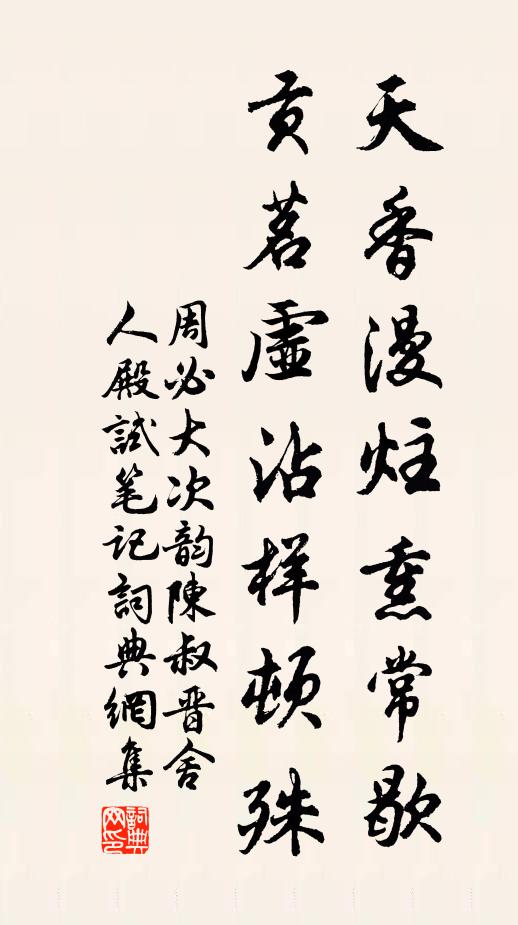 天香漫炷熏常歇
贡茗虚沾样顿殊
周必大次韵陳叔晋舍
人殿試笔记詞典網集
詞典网印